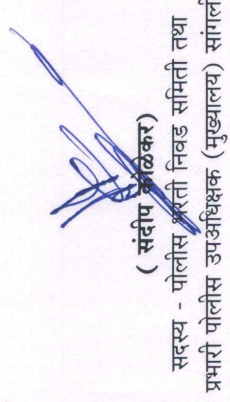 ( संदीप कोळेकर)
सदस्य - पोलीस भरती निवड समिती तथा
प्रभारी पोलीस उपअधिक्षक (मुख्यालय) सांगली